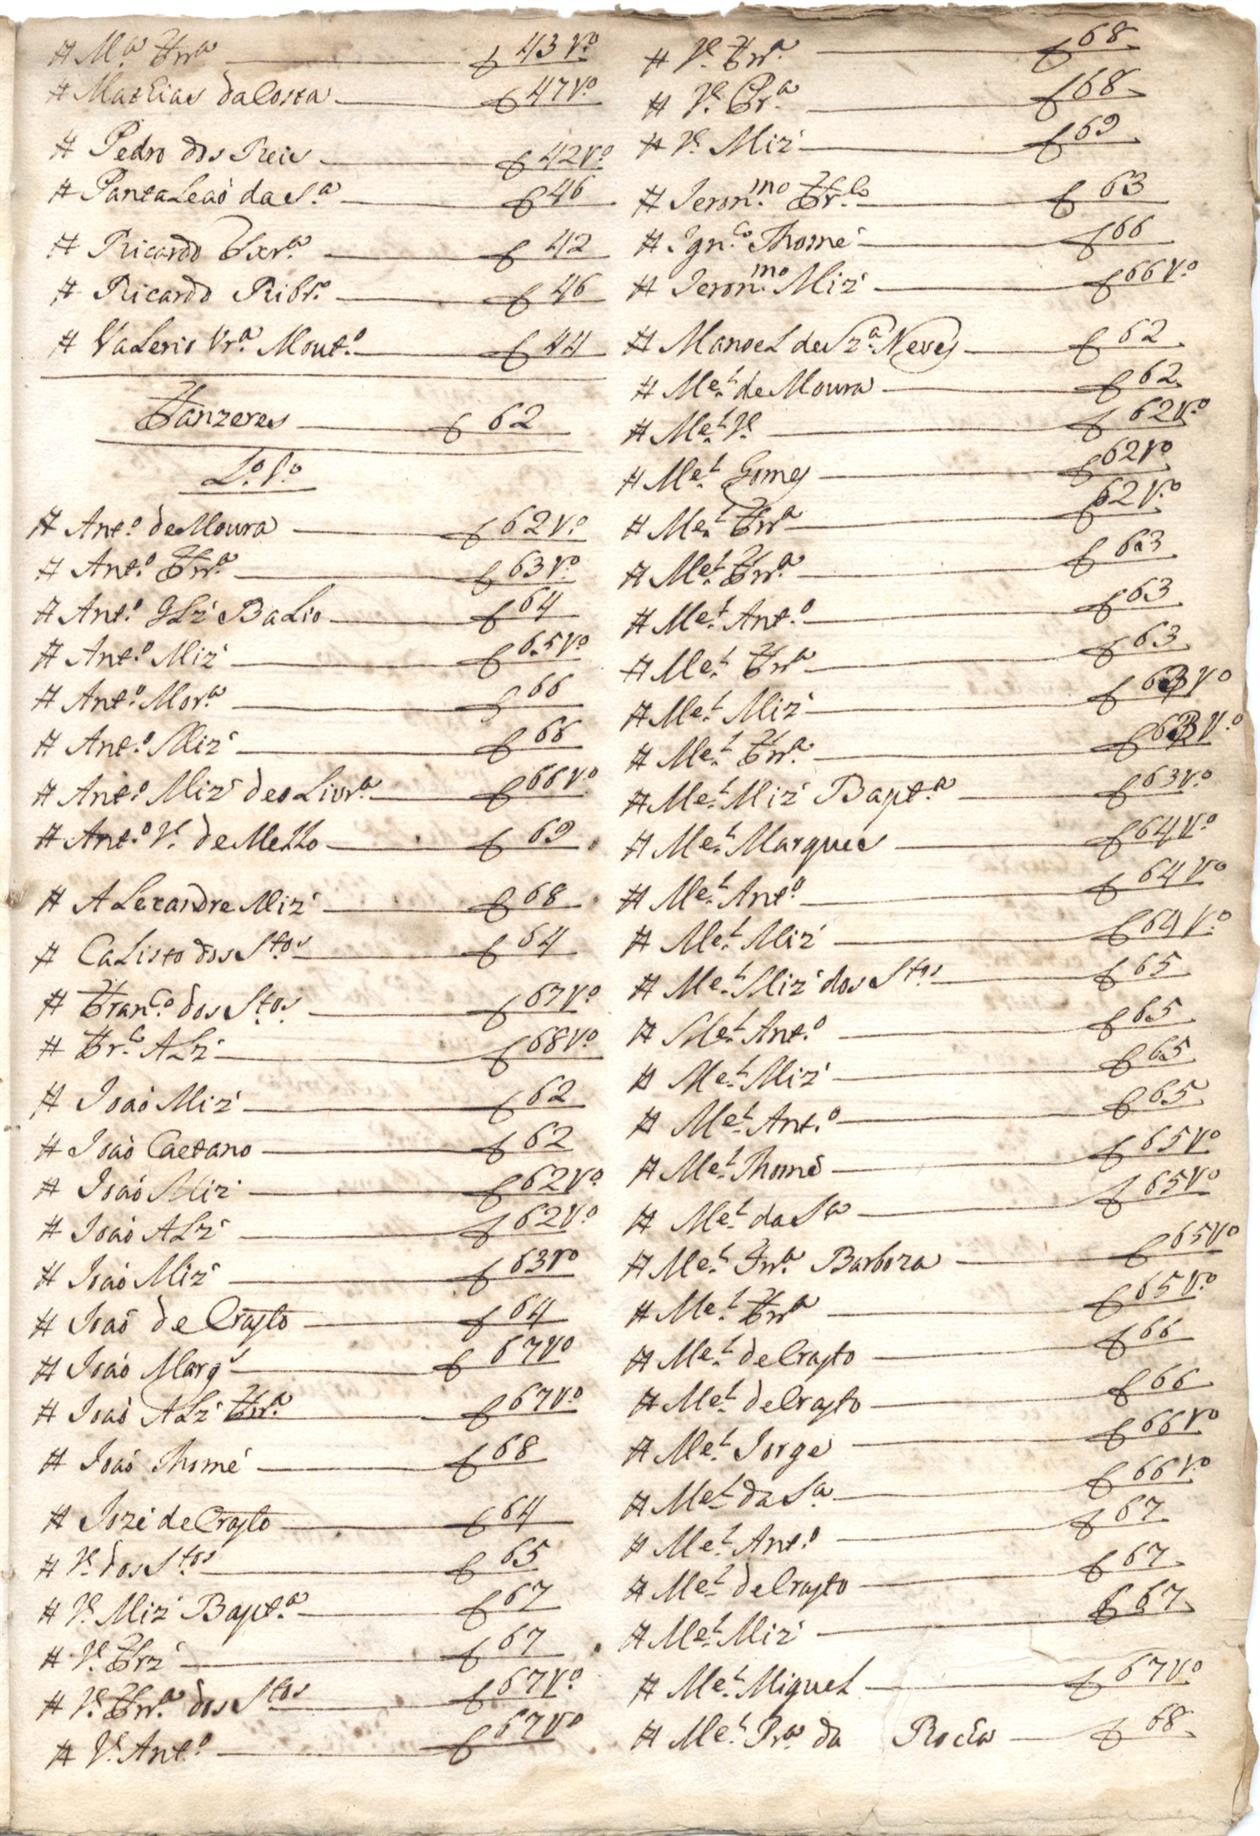 # M.ª Frr.ª — f 43 v.º
# Mathias da Costa — f 47 v.º
# Pedro dos Reis — f 42 v.º
# Pantaleaõ da S.ª — f 46
# Ricardo Txr.ª — f 42
# Ricardo Ribr.º — f 46
# Valerio Vr.ª Mont.º — f 44
Fanzeres — f 62
L.º 1.º
# Ant.º de Moura — f 62 v.º
# Ant.º Frr.ª — f 63 v.º
# Ant.º Glz' Balio — f 64
# Ant.º Miz' — f 65 v.º
# Ant.º Mor.ª — f 66
# Ant.º Miz' — f 66
# Ant.º Miz' de oLivr.ª — f 66 v.º
# Ant.º Je. de Mello — f 69
# Alexandre Miz' — f 68
# Calisto dos S.tos — f 64
# Fran.co dos S.tos — f 67 v.º
# Fr.co Alz' — f 68 v.º
# Joaõ Miz' — f 62
# Joaõ Caetano — f 62
# Joaõ Miz' — f 62 v.º
# Joaõ Alz' — f 62 v.º
# Joaõ Miz' — f 63 v.º
# Joaõ de Crasto — f 64
# Joaõ Marq.s — f 67 v.º
# Joaõ Alz' Frr.ª — f 67 v.º
# Joaõ Thomé — f 68
# Jozé de Crasto — f 64
# Je. dos S.tos — f 65
# Je. Miz' Bapt.ª — f 67
# Je. Frz' — f 67
# Je. Frr.ª dos S.tos — f 67 v.º
# Je. Ant.º — f 67 v.º
# Je. Frr.ª — f 68
# Je. Pr.ª — f 68
# Je. Miz' — f 69
# Jeron.mo Fr.co — f 63
# Ign.co Thomé — f 66
# Jeron.mo Miz' — f 66 v.º
# Manoel de Sz.ª Neves — f 62
# Mel. de Moura — f 62
# Mel. Je. — f 62 v.º
# Mel. Gomes — f 62 v.º
# Mel. Frr.ª — f 62 v.º
# Mel. Frr.ª — f 63
# Mel. Ant.º — f 63
# Mel. Frr.ª — f 63
# Mel. Miz' — f 63 v.º
# Mel. Frr.ª — f 63 v.º
# Mel. Miz' Bapt.ª — f 63 v.º
# Mel. Marques — f 64 v.º
# Mel. Ant.º — f 64 v.º
# Mel. Miz' — f 64 v.º
# Mel. Miz' dos S.tos — f 65
# Mel. Ant.º — f 65
# Mel. Miz' — f 65
# Mel. Ant.º — f 65
# Mel. Thomé — f 65 v.º
# Mel. da S.ª — f 65 v.º
# Mel. Frr.ª Barboza — f 65 v.º
# Mel. Frr.ª — f 65 v.º
# Mel. de Crasto — f 66
# Mel. de Crasto — f 66
# Mel. Jorge — f 66 v.º
# Mel. da S.ª — f 66 v.º
# Mel. Ant.º — f 67
# Mel. de Crasto — f 67
# Mel. Miz' — f 67
# Mel. Miguel — f 67 v.º
# Mel. Pr.ª da Rocha — f 68